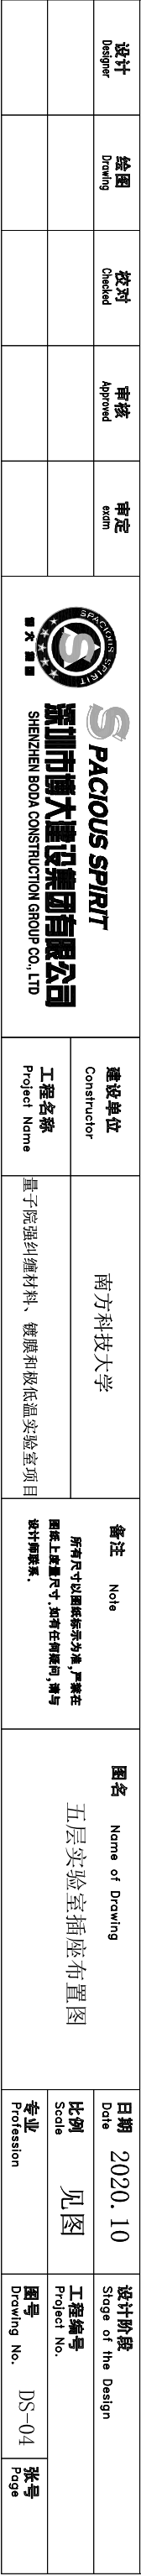 设计
Designer
绘图
Drawing
校对
Checked
审核
Approved
审定
exam
SPACIOUS SPIRIT
S
博大建设
SPACIOUS SPIRIT
深圳市博大建设集团有限公司
SHENZHEN BODA CONSTRUCTION GROUP CO., LTD
建设单位
Constructor
南方科技大学
工程名称
Project Name
量子院强纠缠材料、镀膜和极低温实验室项目
备注 Note
所有尺寸以图纸标示为准,严禁在
图纸上度量尺寸.如有任何疑问,请与
设计师联系.
图名 Name of Drawing
五层实验室插座布置图
日期
Date
2020.10
比例
Scale
见图
专业
Profession
设计阶段
Stage of the Design
工程编号
Project No.
图号
Drawing No.
DS-04
张号
Page